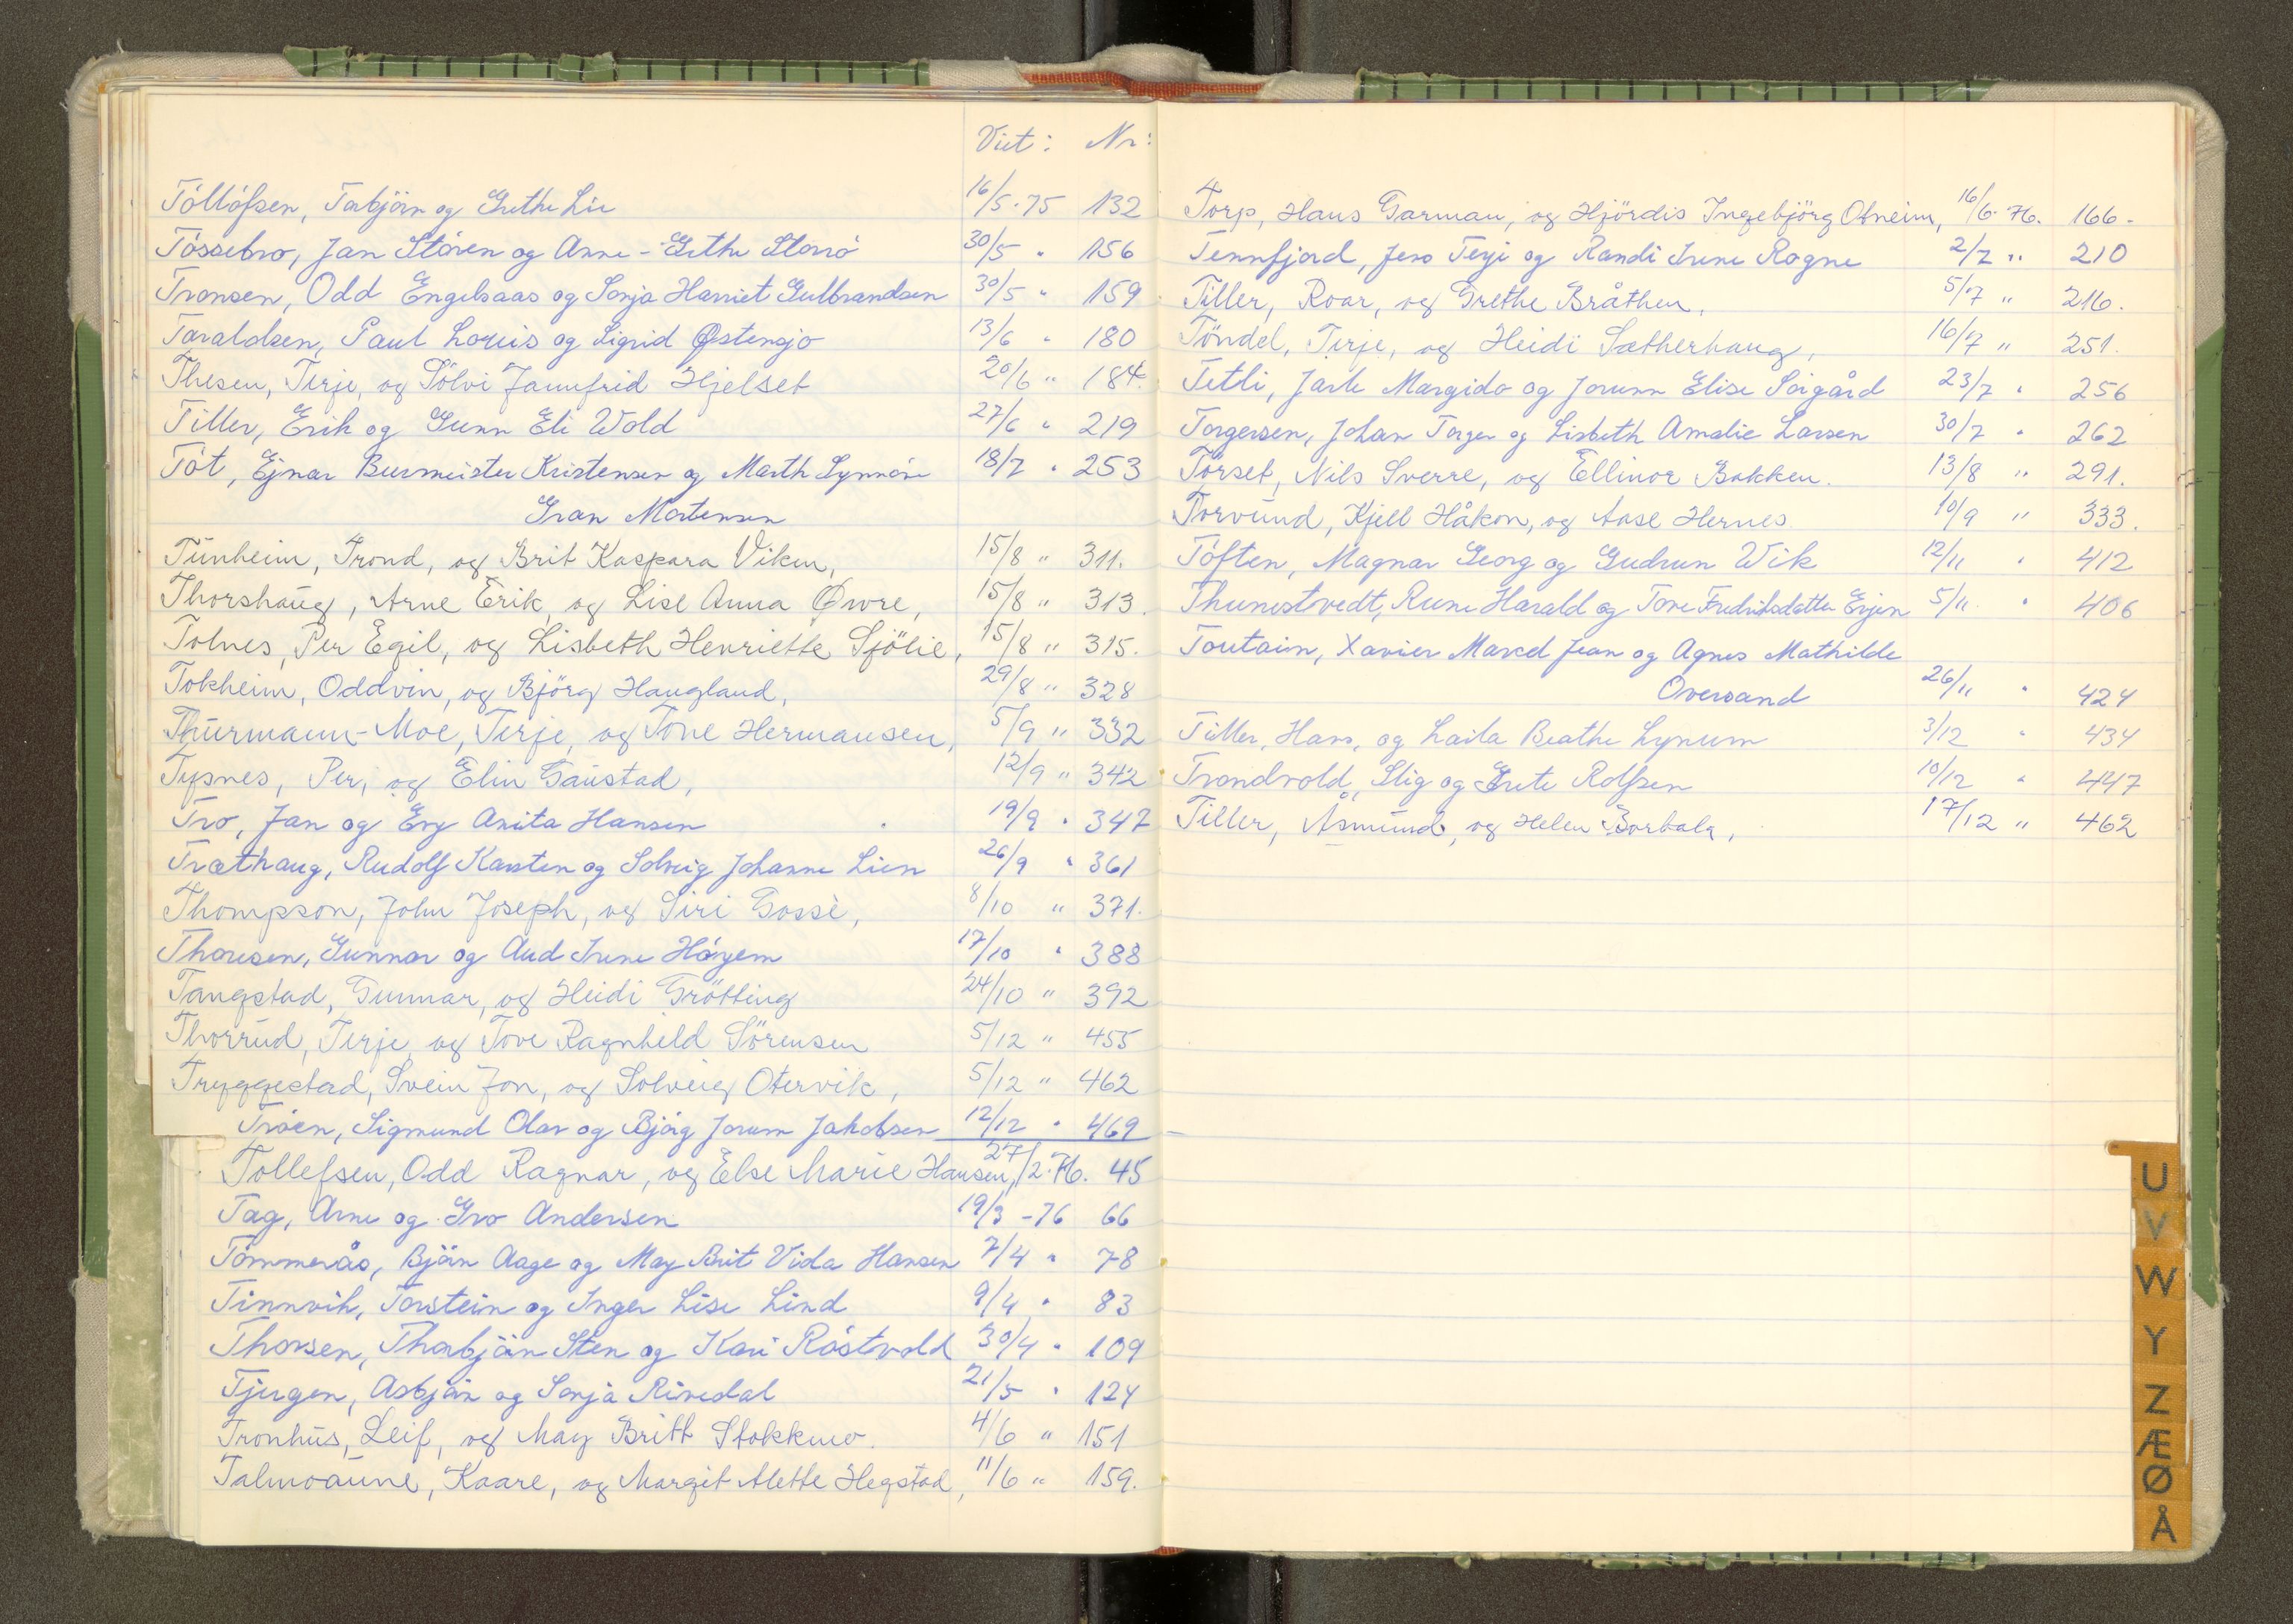 Viet: Nr:
Tóllófsen, Torbjörn og Grethe Lie 16/5-75 132
Tóssebro, Jan Stóren og Anne-Grethe Storró 30/5 " 156
Tronsen, Odd Engelsaas og Sonja Harriet Gulbrandsen 30/5 " 159
Taraldsen, Paul Louis og Sigrid Østensjo 13/6 " 180
Thesen, Terje, og Sölvi Jannfrid Hjelset 20/6 " 184.
Tiller, Erik og Gunn Eli Wold 27/6 " 219
Tót, Ejnar Burmeister Kristensen og Marth Synnóve 18/7 " 253
Gran Mortensen
Tunheim, Trond, og Brit Kaspara Viken, 15/8 " 311.
Thorshaug, Arne Erik, og Lise Anna Øvre, 15/8 " 313.
Tolnes, Per Egil, og Lisbeth Henriette Sjölie, 15/8 " 315.
Tokheim, Oddvin, og Björg Haugland, 29/8 " 328
Thurmann-Moe, Terje, og Tone Hermansen, 5/9 " 332
Tysnes, Per, og Elin Gaustad, 12/9 " 342
Tro, Jan og Evy Anita Hansen 19/9 " 347
Træthaug, Rudolf Karsten og Solveig Johanne Lien 26/9 " 361
Thompson, John Joseph, og Siri Gossé, 8/10 " 371.
Thoresen, Gunnar og Aud Irene Hóyem 17/10 " 388
Tangstad, Gunnar, og Heidi Grötting 24/10 " 392
Thorrud, Terje, og Tove Ragnhild Sörensen 5/12 " 455
Tryggestad, Svein Jon, og Solveig Otervik, 5/12 " 462
Tróen, Sigmund Olav og Bjórg Jorunn Jakobsen 12/12 " 469
Tollefsen, Odd Ragnar, og Else Marie Hansen, 27/2-76. 45
Tag, Arne og Gro Andersen 19/3-76 66
Tómmerås, Bjórn Aage og May Brit Vida Hansen 7/4 " 78
Tinnvik, Torstein og Inger Lise Lind 9/4 " 83
Thorsen, Thorbjórn Sten og Kari Róstvold 30/4 " 109
Tjugen, Asbjórn og Sonja Rivedal 21/5 " 124
Tronhus, Leif, og May Britt Stokkmo. 4/6 " 151
Talmoaune, Kaare, og Margit Alette Hegstad, 11/6 " 159.
Torp, Hans Garman, og Hjördis Ingebjörg Obneim, 16/6-76. 166-
Tennfjord, Jens Terje og Randi Irene Rogne 2/7 " 210
Tiller, Roar, og Grethe Bråthen, 5/7 " 216.
Töndel, Terje, og Heidi Sætherhaug, 16/7 " 251.
Tetli, Jarle Margido og Jorunn Elise Sórgård 23/7 " 256
Torgersen, Johan Torger og Lisbeth Amalie Larsen 30/7 " 262
Törset, Nils Sverre, og Ellinor Bakken. 13/8 " 291.
Torvund, Kjell Håkon, og Aase Hernes 10/9 " 333.
Tóften, Magnar Georg og Gudrun Wik 12/11 " 412
Thunestvedt, Rune Harald og Tove Fredriksdatter Evjen 5/11. " 406
Toutain, Xavier Marcel Jean og Agnes Mathilde
Oversand 26/11 " 424
Tiller, Hans, og Laila Beathe Lynum 3/12 " 434
Trondvold, Stig og Grete Rolfsen 10/12 " 447
Tiller, Åsmund, og Helen Borbala, 17/12 " 462
U
V
W
Y
Z
Æ
Ø
Å